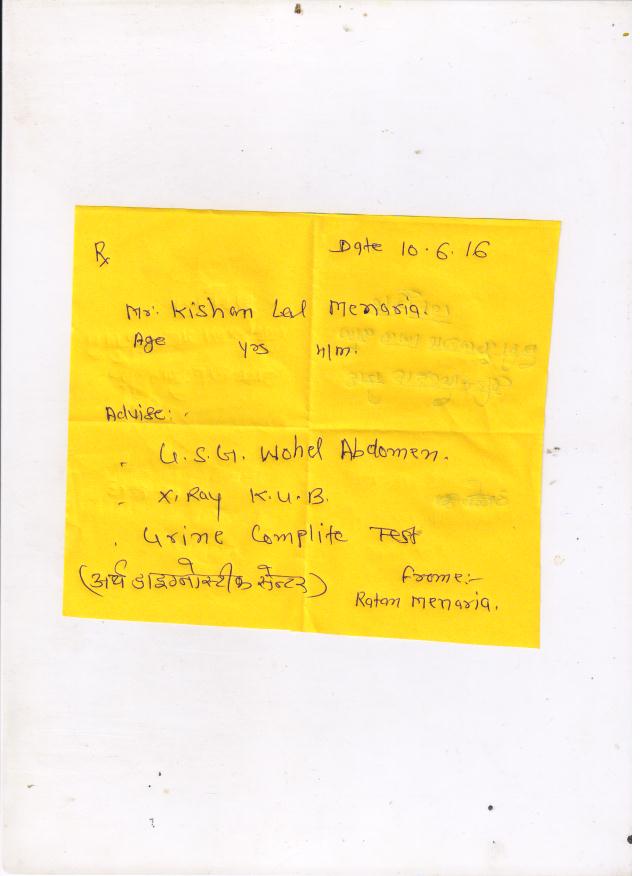 Rx Date 10.6.16
Mr. Kishan Lal Menaria.
Age yrs M/M.
Advise:-
U.S.G. Wohel Abdomen.
X.Ray K.U.B.
Urine Complite Test
(अर्थ डाइग्नोस्टीक सेन्टर) Frome:-
Ratan Menaria.